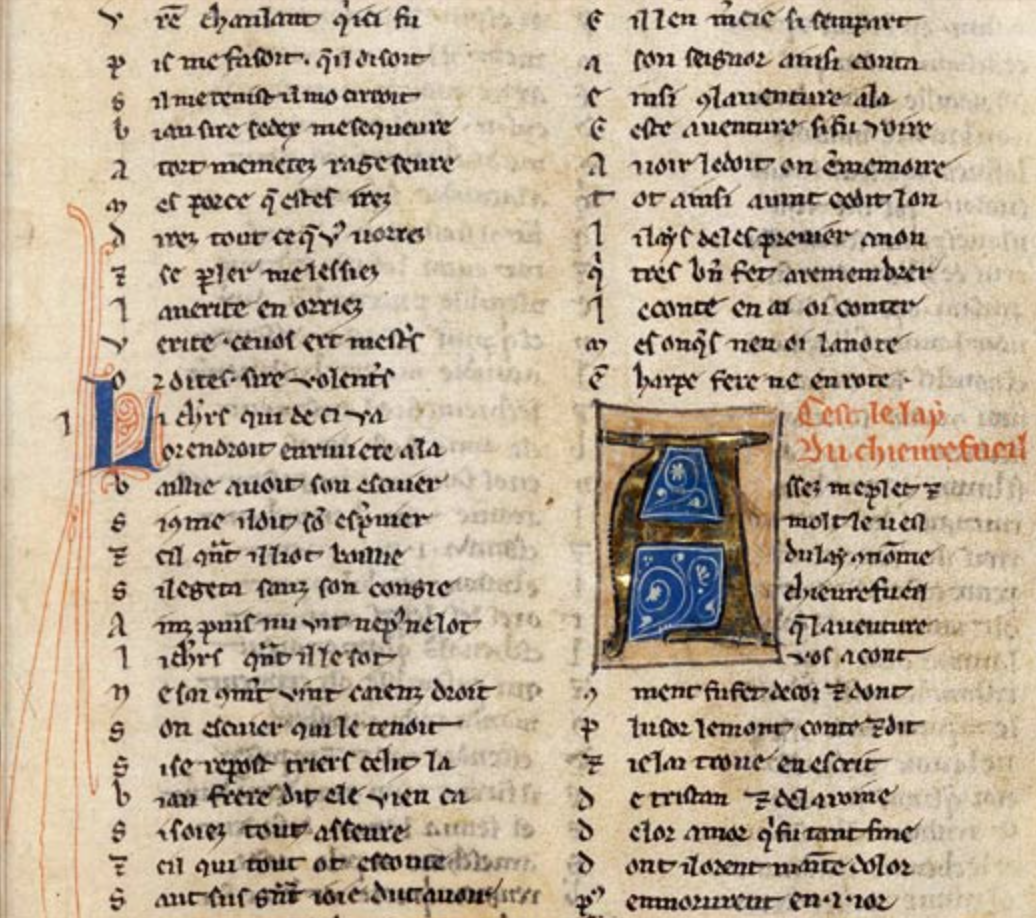 V re chantant q'ici fu
P is me fasoit . q'il disoit
S il me tenist il mociroit
b iau sire sedex me sequeure
A tort memetez rage seure
M es parce q̄ estes irez
d irez tout ce q̄ vꝰ uorrez
⁊ se p̄ler me lessiez
l auerite en orriez
V erite . ce uos ert mestrs
O r dites . sire volentrs
L i chlrs qui de ci va
orendroit enriuiere ala
b aillie auoit son escuier
S
⁊ cil qn̄t il liot baillie
S ilgeta sanz son congie
A inz puis nu vit ne lot
l i chlrs qn̄t il le sot
N droit
S on escuier qui le tenoit
S ise repost triers celit la
b iau frere dit ele vien ca
S isoiez tout asseure
⁊ cil qui tout ot escoute
S aut sus
E ill en m̄cie si sempart
A son seignor ainsi conta
C nsi ꝯ lauenture ala
C este auenture si fu voire
A uoir ledoit on ēmemoire
T ot ainsi auint cedit lan
l i lays delespreuier anon
Q' tres bn̄ fet aremembrer
l econte en ai oi conter
M es onqs nen oi lanote
E harpe fere ne enrote .
Cest le lay
Du chieurefueil
A ssez me plet ⁊
molt le ueil
du lay q̄nōme
chieurefueil
q̄ lauenture
vos acont
M ment fu fet decoi ⁊ dont
P lusor lemont conte ⁊ dit
⁊ ielai troue en escrit
d e tristan ⁊ de laroine
d elor amor q'fu tant fine
d ont il orent mainte dolor
P' enmorurent en .i. ior